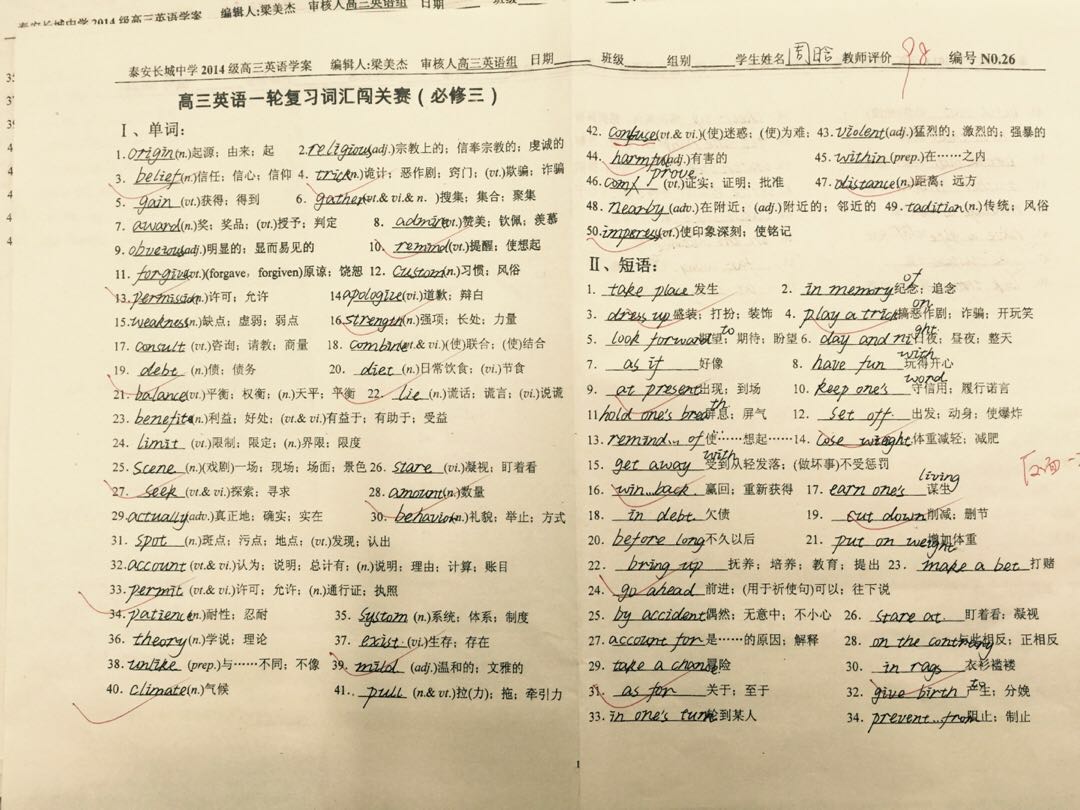 泰安长城中学2014级高三英语学案 编辑人:梁美杰 审核人高三英语组 日期
泰安长城中学2014级高三英语学案 编辑人:梁美杰 审核人高三英语组 日期____ 班级____ 组别____学生姓名 周晗 教师评价 98 编号 N0.26
高三英语一轮复习词汇闯关赛（必修三）
Ⅰ、单词：
1.origin(n.)起源；由来；起 2.religious(adj.)宗教上的；信奉宗教的；虔诚的
3. belief(n.)信任；信心；信仰 4. trick(n.)诡计；恶作剧；窍门；(vt.)欺骗；诈骗
5. gain (vt.)获得；得到 6. gather(vt.& vi.& n.)搜集；集合；聚集
7. award(n.)奖；奖品；(vt.)授予；判定 8. admire(vt.)赞美；钦佩；羡慕
9.obveious(adj.)明显的；显而易见的 10. remind(vt.)提醒；使想起
11. forgive(vt.)(forgave，forgiven)原谅；饶恕 12. custom(n.)习惯；风俗
13.permission(n.)许可；允许 14apologive(vi.)道歉；辩白
15.weakness(n.)缺点；虚弱；弱点 16.strength(n.)强项；长处；力量
17. consult (vt.)咨询；请教；商量 18. combine(vt.&vi.)(使)联合；(使)结合
19. debt (n.)债；债务 20. diet (n.)日常饮食；(vi.)节食
21.balance(vt.)平衡；权衡；(n.)天平；平衡 22. lie (n.)谎话；谎言；(vi.)说谎
23.benefit(n.)利益；好处；(vt.&vi.)有益于；有助于；受益
24. limit (vt.)限制；限定；(n.)界限；限度
25. scene (n.)(戏剧)一场；现场；场面；景色 26. stare (vi.)凝视；盯着看
27. seek (vt.& vi.)探索；寻求 28. amount(n.)数量
29.actually(adv.)真正地；确实；实在 30. behavior(n.)礼貌；举止；方式
31. spot (n.)斑点；污点；地点；(vt.)发现；认出
32.account (vt.& vi.)认为；说明；总计有；(n.)说明；理由；计算；账目
33.permit (vt.& vi.)许可；允许；(n.)通行证；执照
34.patience(n.)耐性；忍耐 35. systom (n.)系统；体系；制度
36. theory(n.)学说；理论 37. exist (vi.)生存；存在
38.unlike (prep.)与……不同；不像 39. mild (adj.)温和的；文雅的
40. climate(n.)气候 41. pull (n.& vt.)拉(力)；拖；牵引力
42. confuse(vt.& vi.)(使)迷惑；(使)为难；43.violent(adj.)猛烈的；激烈的；强暴的
44. harmful(adj.)有害的 45. within (prep.)在……之内
46. prove (vt.)证实；证明；批准 47. distance(n.)距离；远方
48. nearby (adv.)在附近；(adj.)附近的；邻近的 49. tadition(n.)传统；风俗
50.imperess(vt.)使印象深刻；使铭记
Ⅱ、短语：
1. take place 发生 2. in memory of 纪念；追念
3. dress up 盛装；打扮；装饰 4. play a trick on 搞恶作剧；诈骗；开玩笑
5. look forward to 期望；期待；盼望 6. day and night 日夜；昼夜；整天
7. as if 好像 8. have fun with 玩得开心
9. at present 出现；到场 10. keep one's word 守信用；履行诺言
11hold one's breath 屏息；屏气 12. set off 出发；动身；使爆炸
13. remind...of 使……想起……14. lose weight 体重减轻；减肥
15. get away with 受到从轻发落；(做坏事)不受惩罚
16. win..back. 赢回；重新获得 17. earn one's living 谋生
18. in debt 欠债 19. cut down 削减；删节
20. before long 不久以后 21. put on weight 增加体重
22. bring up 抚养；培养；教育；提出 23. make a bet 打赌
24. go ahead 前进；(用于祈使句)可以；往下说
25. by accident 偶然；无意中；不小心 26. stare at 盯着看；凝视
27. account for 是……的原因；解释 28. on the contrary 与此相反；正相反
29. take a chance 冒险 30. in rags 衣衫褴褛
31. as for 关于；至于 32. give birth to 产生；分娩
33. in one's turn 轮到某人 34. prevent...from 阻止；制止
1